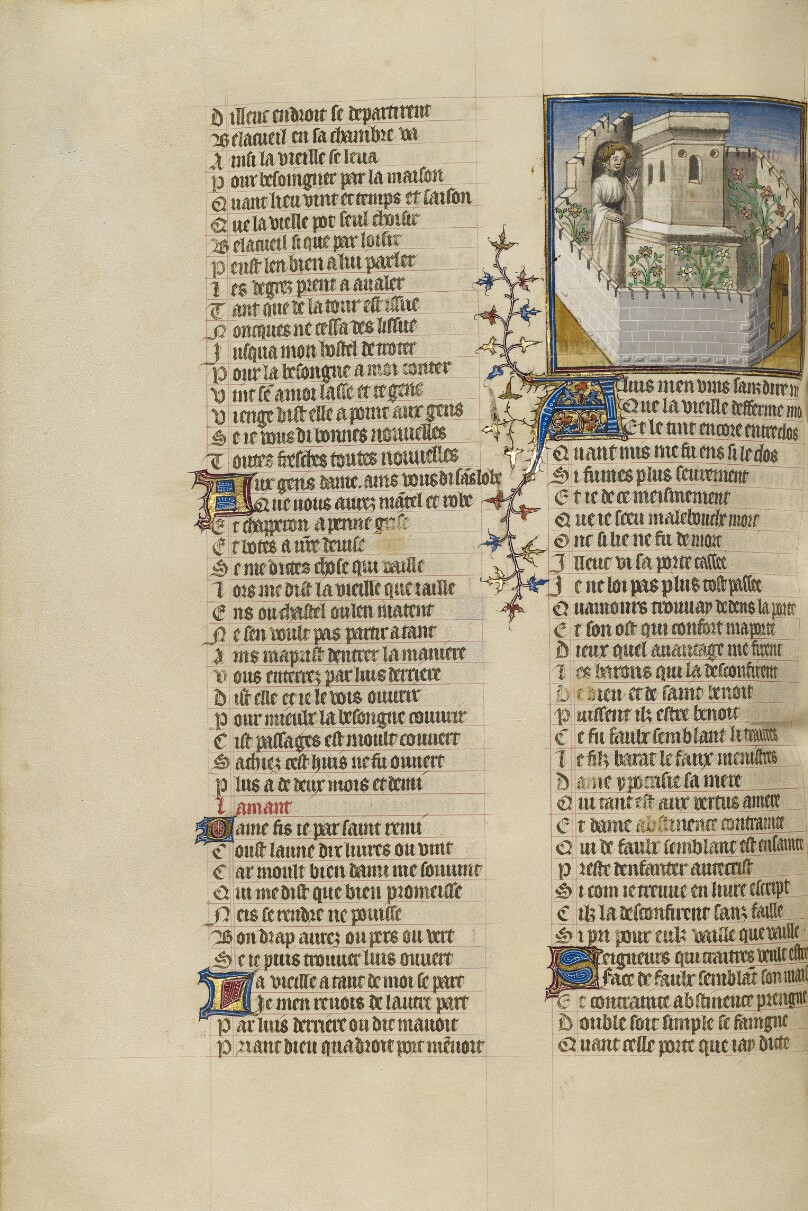 D illeuc endroit se departirent
B elacueil en sa chambre va
A insi la vieille se leua
P our besoingner par la maison
Q uant lieu vint et temps et saison
Q ue la vielle pot seul choisir
B elacueil si que par loisir
P eust len bien a lui parler
L es degrez prent a aualer
T ant que de la tour est issue
N oncques ne cessa des lissue
J usqua mon hostel de troter
P our la besongne a moi conter
V int sē a moi lasse et
V ienge dist elle a point aux gens
S e ie vous di bonnes nouuelles
T outes fresches toutes nouuelles
A ux gens dame. ains vous di sās lobe
Que vous aurez mātel et robe
E t chapperon a penne grise
E t botes a vr̄e deuise
S e me dictes chose qui vaille
L ors me dist la vieille que iaille
E ns ou chastel ou len matent
N e sen voult pas partir a tant
A ins maprist dentrer la maniere
V ous enterrez par luis derriere
D ist elle et ie le vois ouurir
P our mieulx la besongne couurir
C ist passages est moult couuert
S achiez cest huis ne fu ouuert
P lus a de deux mois et demi
L amant
D ame fis ie par saint remi
C oust laune dix liures ou vint
C ar moult bien dami me souuint
Q ui me dist que bien promeisse
N eis se rendre ne pouisse
B on drap aurez ou pers ou vert
S e ie puis trouuer luis ouuert
L a vieille a tant de moi se part
Je men reuois de lautre part
P ar luis derriere ou dit mauoit
P riant dieu qua droit port mēuoit
A luis men vins sanz dire
Que la vieille defferme
Et le tint encore entreclos
Q uant mis me fu ens si le clos
S i fumes plus seurement
E t ie de ce meismement
Q ue ie sceu malebouche mort
O nc si lie ne fu de mort
J lleuc vi sa porte cassee
J e ne loi pas plus tost passee
Q uamours trouuay dedens la porte
E t son ost qui confort maporte
D ieux quel auantage me firent
L es barons qui la desconfirent
D e dieu et de saint benoit
P uissent ilz estre benoit
C e fu faulx semblant li traitres
L e filz barat le faux menistres
D ame ypocrisie sa mere
Q ui tant est aux vertus amere
E t dame abstinence contrainte
Q ui de faulx semblant est ensainte
P reste denfanter antecrist
S i com ie treuue en liure escript
C ilz la desconfirent sanz faille
S i pri pour eulz vaille que vaille
S eigneurs qui traitres veult estre
Face de faulx semblāt son mais
E t contrainte abstinence prengne
D ouble soit simple se faingne
Q uant celle porte que iay dicte